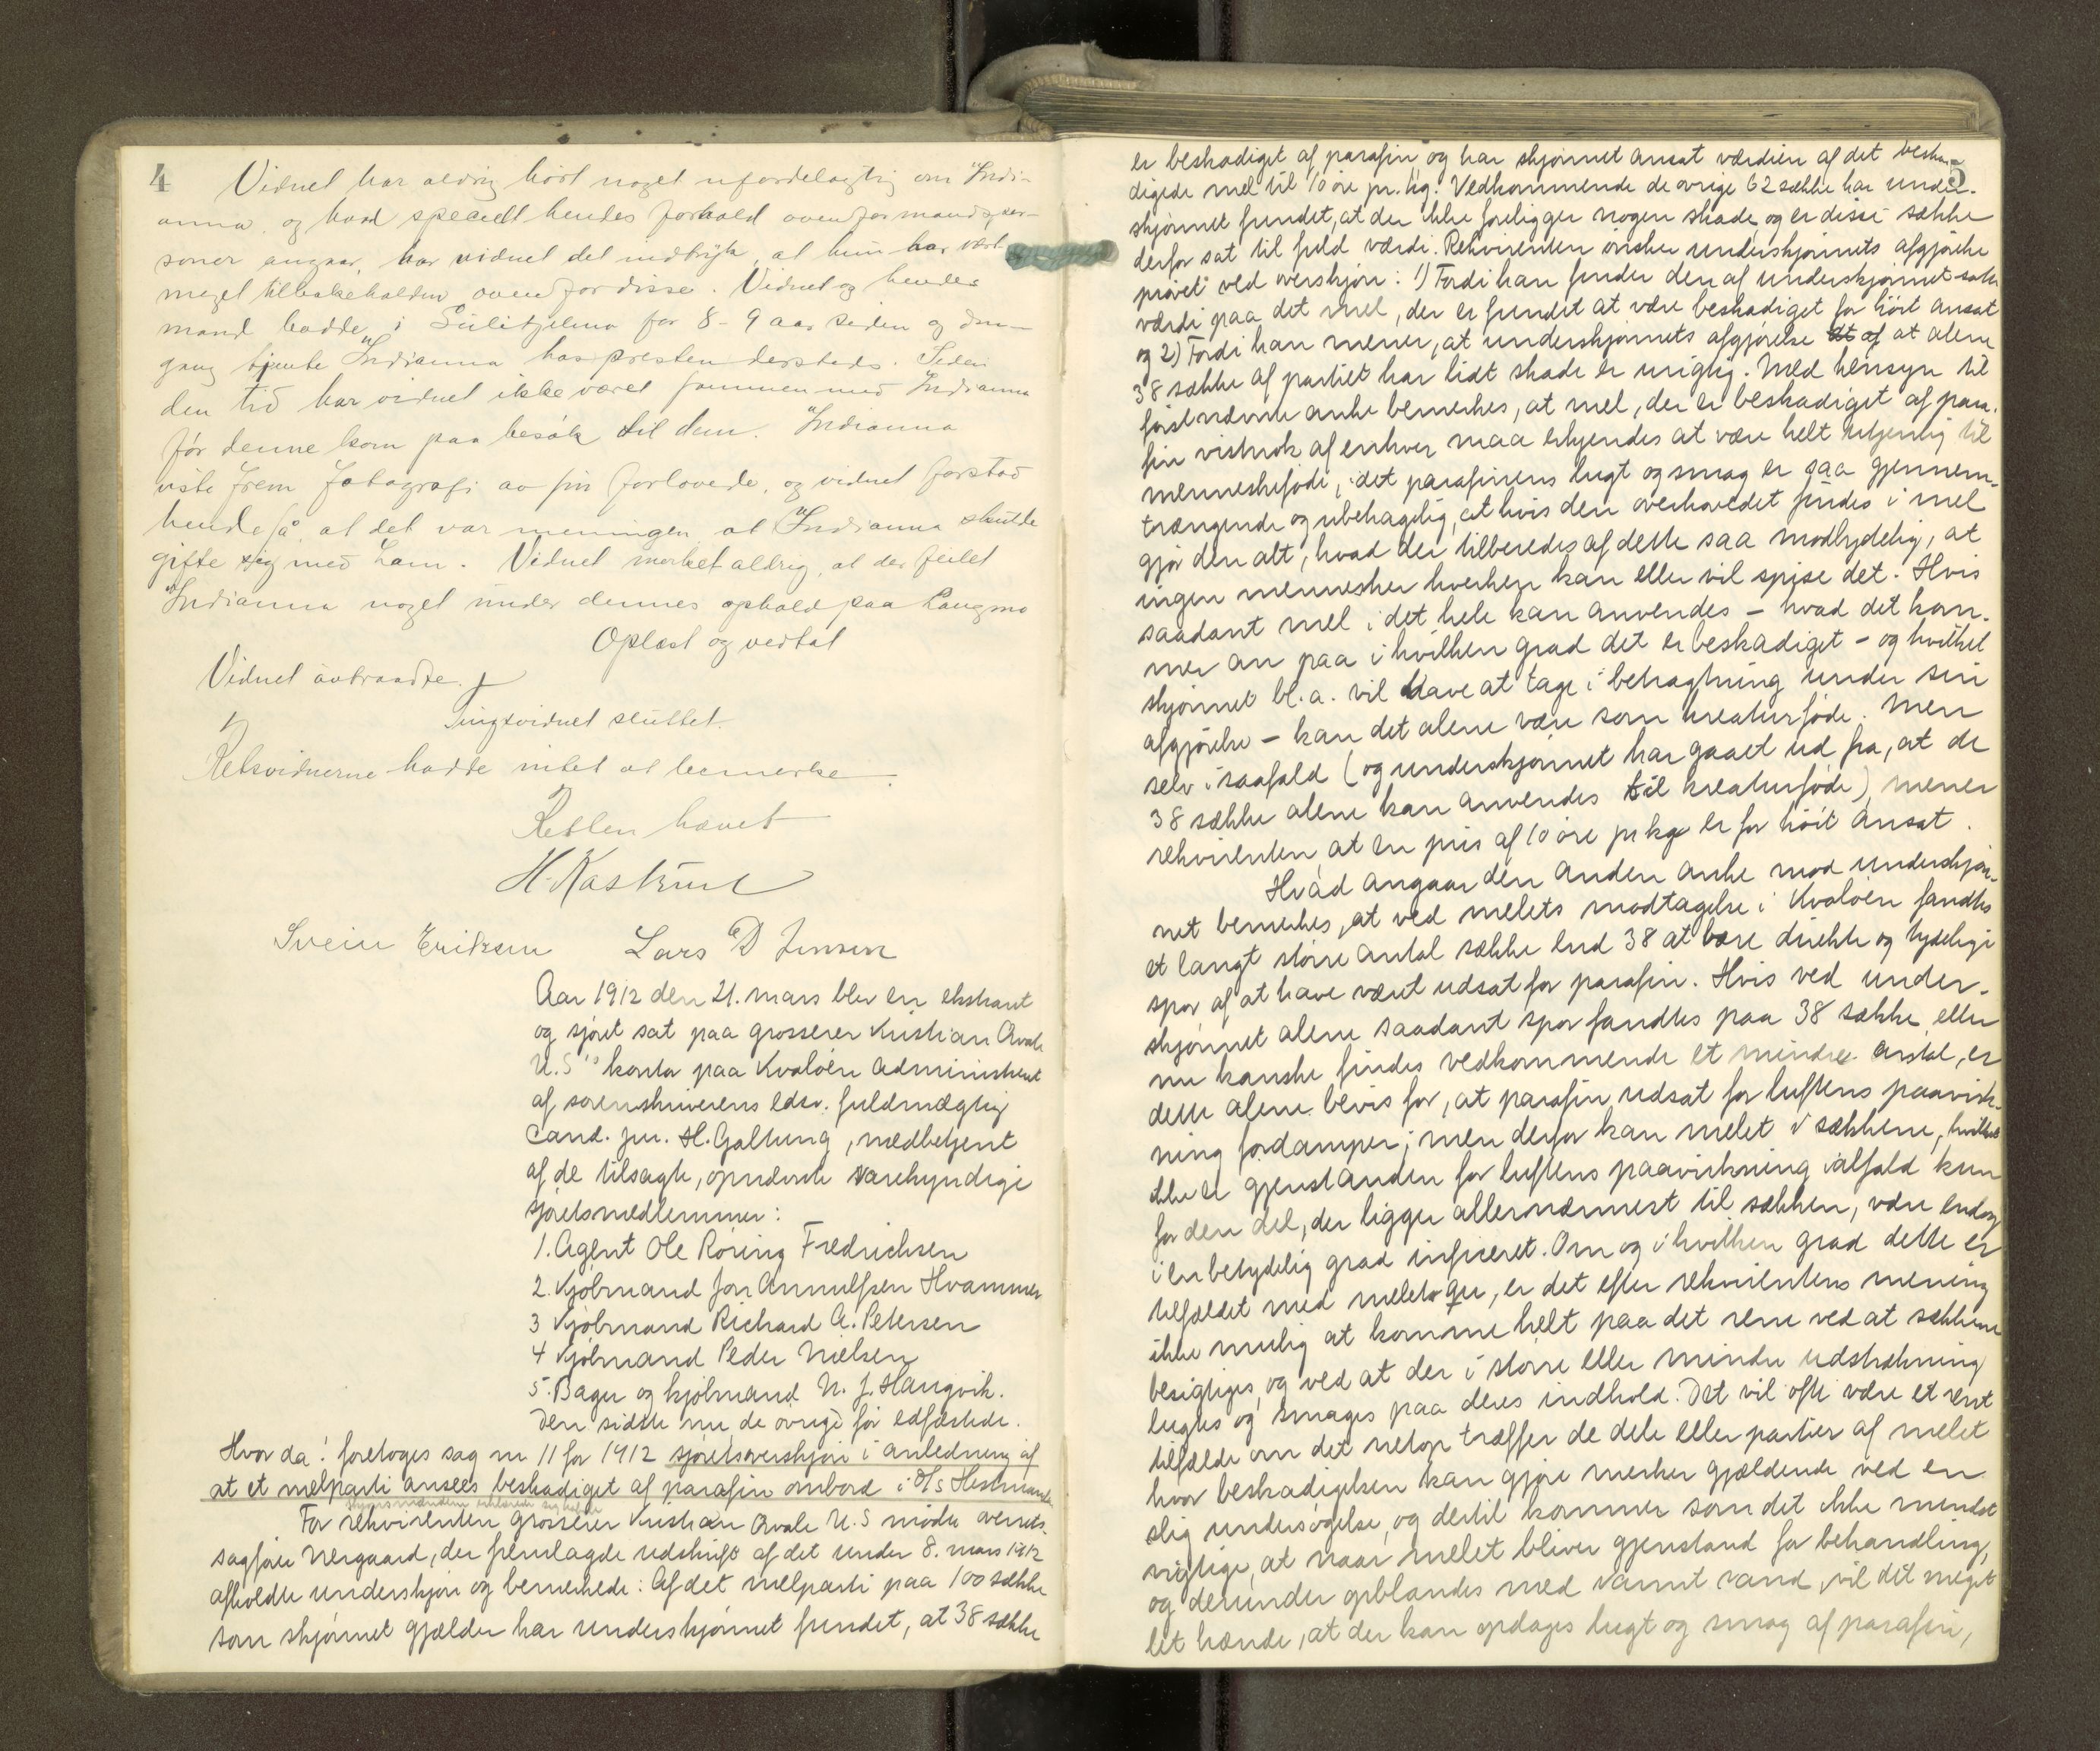 4
Vidnet har aldrig hört noget ufordelagtig om Indi-
anna, og hvad specielt hendes forhold ovenfor mandsper-
soner angaar, har vidnet det indtryk, at hun har vært
meget tilbakeholden ovenfor disse. Vidnet og hendes
mand bodde i Sulitjelma for 8-9 aar siden og den-
gang tjente Indianna hos presten dersteds. Siden
den tid har vidnet ikke været sammen med Indianna
før denne kom paa besök til dem. Indianna
viste frem fotografi av sin forlovede, og vidnet forstod
hende så, at det var meningen at Indianna skulde
gifte sig med ham. Vidnet merket aldrig, at der feilet
Indianna noget under dennes ophold paa Langmo
Oplæst og vedtat
Vidnet avtraadte.
Tingsvidnet sluttet.
Retsvidnerne hadde intet at bemerke.
Retten hævet
H. Kastrud
Svein Eriksen Lars D Jensen
Aar 1912 den 21. mars blev en ekstraret
og sjøret sat paa grosserer Kristian Qvale
U.S's kontor paa Kvaløen administreret
af sorenskriverens edsv. fuldmægtig
Cand. jur. H. Galtung, medbetjent
af de tilsagte, opnævnte varekyndige
sjøretsmedlemmer:
1. Agent Ole Röring Fredrichsen
2. Kjøbmand Jon Arnulfsen Hvammen
3 Kjøbmand Richard A. Petersen
4 Kjøbmand Peder Nielsen
5. Bager og kjøbmand N. J. Haugvik.
Den sidste nu, de øvrige før edfæstede.
Hvor da: foretoges sag nr 11 for 1912 sjøretsoverskjøn i anledning af
at et melparti ansees beskadiget af parafin ombord i D/s Hestmanden
skjønsmændene erklærede sig habile
For rekvirenten grosserer Kristian Qvale U.S mødte overrets-
sagfører Nergaard, der fremlagde udskrift af det under 8. mars 1912
afholdte underskjøn og bemerkede: Af det melparti paa 100 sække
som skjønnet gjælder har underskjønnet fundet, at 38 sække
5
er beskadiget af parafin og har skjønnet ansat værdien af det beska-
digede mel til 10 øre pr. kg. Vedkommende de øvrige 62 sække har under-
skjønnet fundet, at der ikke foreligger nogen skade og er disse sække
derfor sat til fuld værdi. Rekvirenten ønsker underskjønnets afgjørelse
prøvet ved overskjøn: 1) Fordi han finder den af underskjønnet satte
værdi paa det mel, der er fundet at være beskadiget for høit ansat
og 2) Fordi han mener, at underskjønnets afgjørelse at af at alene
38 sække af partiet har lidt skade er urigtig. Med hensyn til
førstnævnte anke bemerkes, at mel, der er beskadiget af para-
fin vistnok af enhver maa erkjendes at være helt utjenlig til
menneskeføde, idet parafinens lugt og smag er saa gjennem-
trængende og ubehagelig, at hvis den overhovedet findes i mel
gjør den alt, hvad der tilberedes af dette saa modbydelig, at
ingen mennesker hverken kan eller vil spise det. Hvis
saadant mel i det hele kan anvendes - hvad det kom-
mer an paa i hvilken grad det er beskadiget - og hvilket
skjønnet bl.a. vil have at tage i betragtning under sin
afgjørelse - kan det alene være som kreaturføde. Men
selv i saafald (og underskjønnet har gaaet ud fra, at de
38 sække alene kan anvendes til kreaturføde) mener
rekvirenten at en pris af 10 øre pr kg er for høit ansat.
Hvad angaar den anden anke mod underskjøn-
net bemerkes, at ved melets modtagelse i Kvaløen fandtes
et langt større antal sække end 38 at bære direkte og tydelige
spor af at have været udsat for parafin. Hvis ved under-
skjønnet alene saadant spor fandtes paa 38 sække, eller
nu kanske findes vedkommende et mindre antal, er
dette alene bevis for, at parafin udsat for luftens paavirk-
ning fordamper; men derfor kan melet i sækkene, hvilket
ikke er gjenstanden for luftens paavirkning ialfald kun
for den del, der ligger allernærmest til sækken, være endog
i en betydelig grad inficeret. Om og i hvilken grad dette er
tilfældet med melet, er det efter rekvirentens mening
ikke mulig at komme helt paa det rene ved at sækkene
besigtiges og ved at der i større eller mindre udstrækning
lugtes og smages paa deres indhold. Det vil ofte være et rent
tilfælde om det netop træffer de dele eller partier af melet
hvor beskadigelsen kan gjøre merker gjældende ved en
slig undersøgelse, og dertil kommer som det ikke mindst
vigtige, at naar melet bliver gjenstand for behandling,
og derunder opblandes med varmt vand, vil det meget
let hænde, at der kan opdages lugt og smag af parafin,